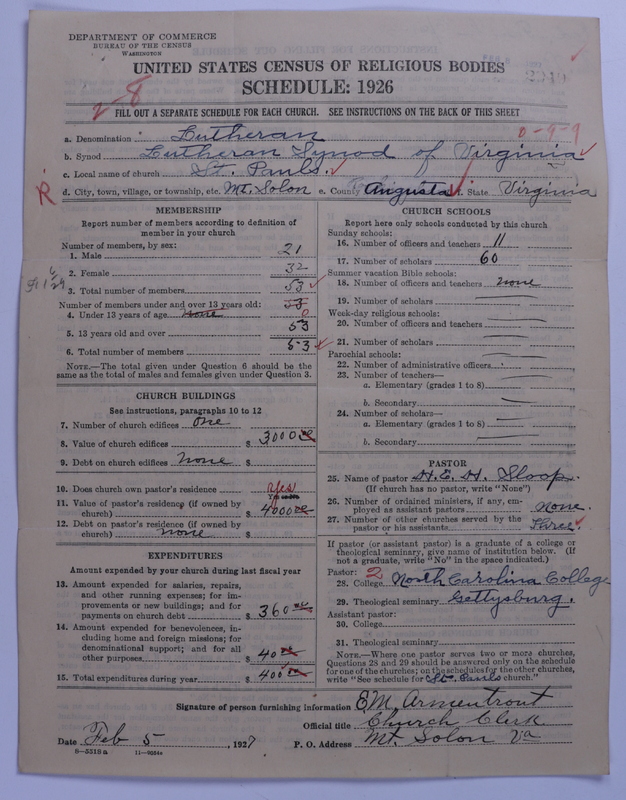 DEPARTMENT OF COMMERCE
BUREAU OF THE CENSUS
WASHINGTON
UNITED STATES CENSUS OF RELIGIOUS BODIES
SCHEDULE: 1926
2-8
FILL OUT A SEPARATE SCHEDULE FOR EACH CHURCH. SEE INSTRUCTIONS ON THE BACK OF THIS SHEET
0-9-9
a. Denomination Lutheran
b. Synod Lutheran Synod of Virginia
c. Local name of church St. Pauls.
R
d. City, town, village, or township, etc. Mt. Solon e. County Augusta f. State Virginia
MEMBERSHIP
Report number of members according to definition of
member in your church
Number of members, by sex:
1. Male 21
2. Female 32
3. Total number of members 53
Number of members under and over 13 years old: 53
4. Under 13 years of age none 0
5. 13 years old and over 53
6. Total number of members 53
NOTE.—The total given under Question 6 should be
same as the total of males and females given under Question 3.
CHURCH BUILDINGS
See instructions, paragraphs 10 to 12
7. Number of church edifices one
8. Value of church edifices $ 3000 00
9. Debt on church edifices none $
10. Does church own pastor's residence yes
11. Value of pastor's residence (if owned by
church) $ 4000 00
12. Debt on pastor's residence (if owned by
church) none $
EXPENDITURES
Amount expended by your church during last fiscal year
13. Amount expended for salaries, repairs,
and other running expenses; for im-
provements or new buildings; and for
payments on church debt $ 360 00
14. Amount expended for benevolences, in-
cluding home and foreign missions; for
denominational support; and for all
other purposes $ 40 00
15. Total expenditures during year $ 400 00
CHURCH SCHOOLS
Report here only schools conducted by this church
Sunday schools:
16. Number of officers and teachers 11
17. Number of scholars 60
Summer vacation Bible schools:
18. Number of officers and teachers none
19. Number of scholars
Week-day religious schools:
20. Number of officers and teachers
21. Number of scholars
Parochial schools:
22. Number of administrative officers
23. Number of teachers—
a. Elementary (grades 1 to 8)
b. Secondary
24. Number of scholars—
a. Elementary (grades 1 to 8)
b. Secondary
PASTOR
25. Name of pastor H. E. H. Sloop.
(If church has no pastor, write "None")
26. Number of ordained ministers, if any, em-
ployed as assistant pastors none.
27. Number of other churches served by the
pastor or his assistants Three.
If pastor (or assistant pastor) is a graduate of a college or
theological seminary, give name of institution below. (If
not a graduate, write "No" in the space indicated.)
Pastor: 2
28. College North Carolina College
29. Theological seminary Gettysburg.
Assistant pastor:
30. College
31. Theological seminary
NOTE.—Where one pastor serves two or more churches,
Questions 28 and 29 should be answered only on the schedule
for one of the churches; on the schedules for the other churches,
write "See schedule for St. Pauls church."
Signature of person furnishing information E.M. Armentrout
Official title Church Clerk
Date Feb 5, 1927 P. O. Address Mt. Solon Va
8—5318a 11—9264a